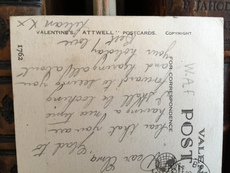 VALENTINE'S "ATTWELL" POSTCARDS. COPYRIGHT
1761
FOR CORRESPONDENCE
POST
VALEN
W.A.F
Dear
Glad to
hear that you are
having a nice time
I shall be looking
forward to seeing you
and hearing all about
your holiday
Best love
Lillian X X
P. JAHO